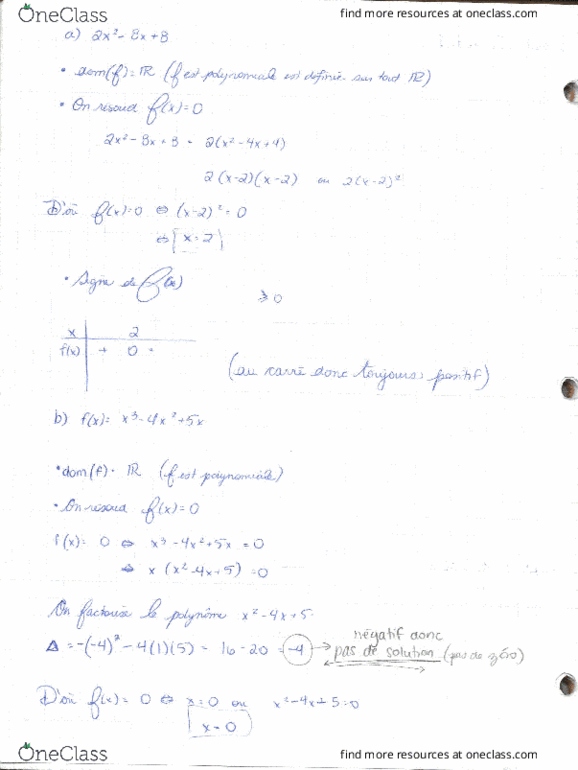 OneClass
find more resources at oneclass.com
a) 2x² - 8x + 8
• dom(f) = ℝ (f est polynomiale est définie sur tout ℝ)
• On résoud f(x) = 0
2x² - 8x + 8 = 2(x² - 4x + 4)
2(x-2)(x-2) ou 2(x-2)²
D'où f(x)=0 ⇔ (x-2)² = 0
⇔ x = 2
• Signe de f(x)
≥ 0
x 2
f(x) + 0 +
(au carré donc toujours positif)
b) f(x) = x³ - 4x² + 5x
• dom(f) = ℝ (f est polynomiale)
• On résoud f(x) = 0
f(x) = 0 ⇔ x³ - 4x² + 5x = 0
⇒ x (x² - 4x + 5) = 0
On factorise le polynôme x² - 4x + 5
Δ = -(-4)² - 4(1)(5) = 16 - 20 = -4 → négatif donc
pas de solution (pas de zéro)
D'où f(x) = 0 ⇔ x = 0 ou x² - 4x + 5 = 0
x = 0
OneClass
find more resources at oneclass.com